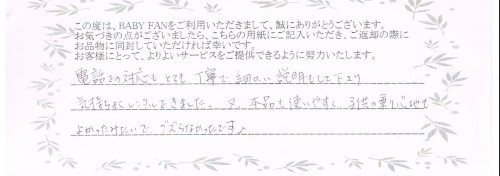 この度は、BABY FANをご利用いただきまして、誠にありがとうございます。
お気づきの点がございましたら、こちらの用紙にご記入いただき、ご返却の際に
お品物に同封していただければ幸いです。
お客様にとって、よりよいサービスをご提供できるように努力いたします。
電話での対応もとても丁寧で細かい説明もして下さり
気持ちよくレンタルできました。又、本品も使いやすく、子供の乗り心地も
よかったみたいで、グズらなかったです♪